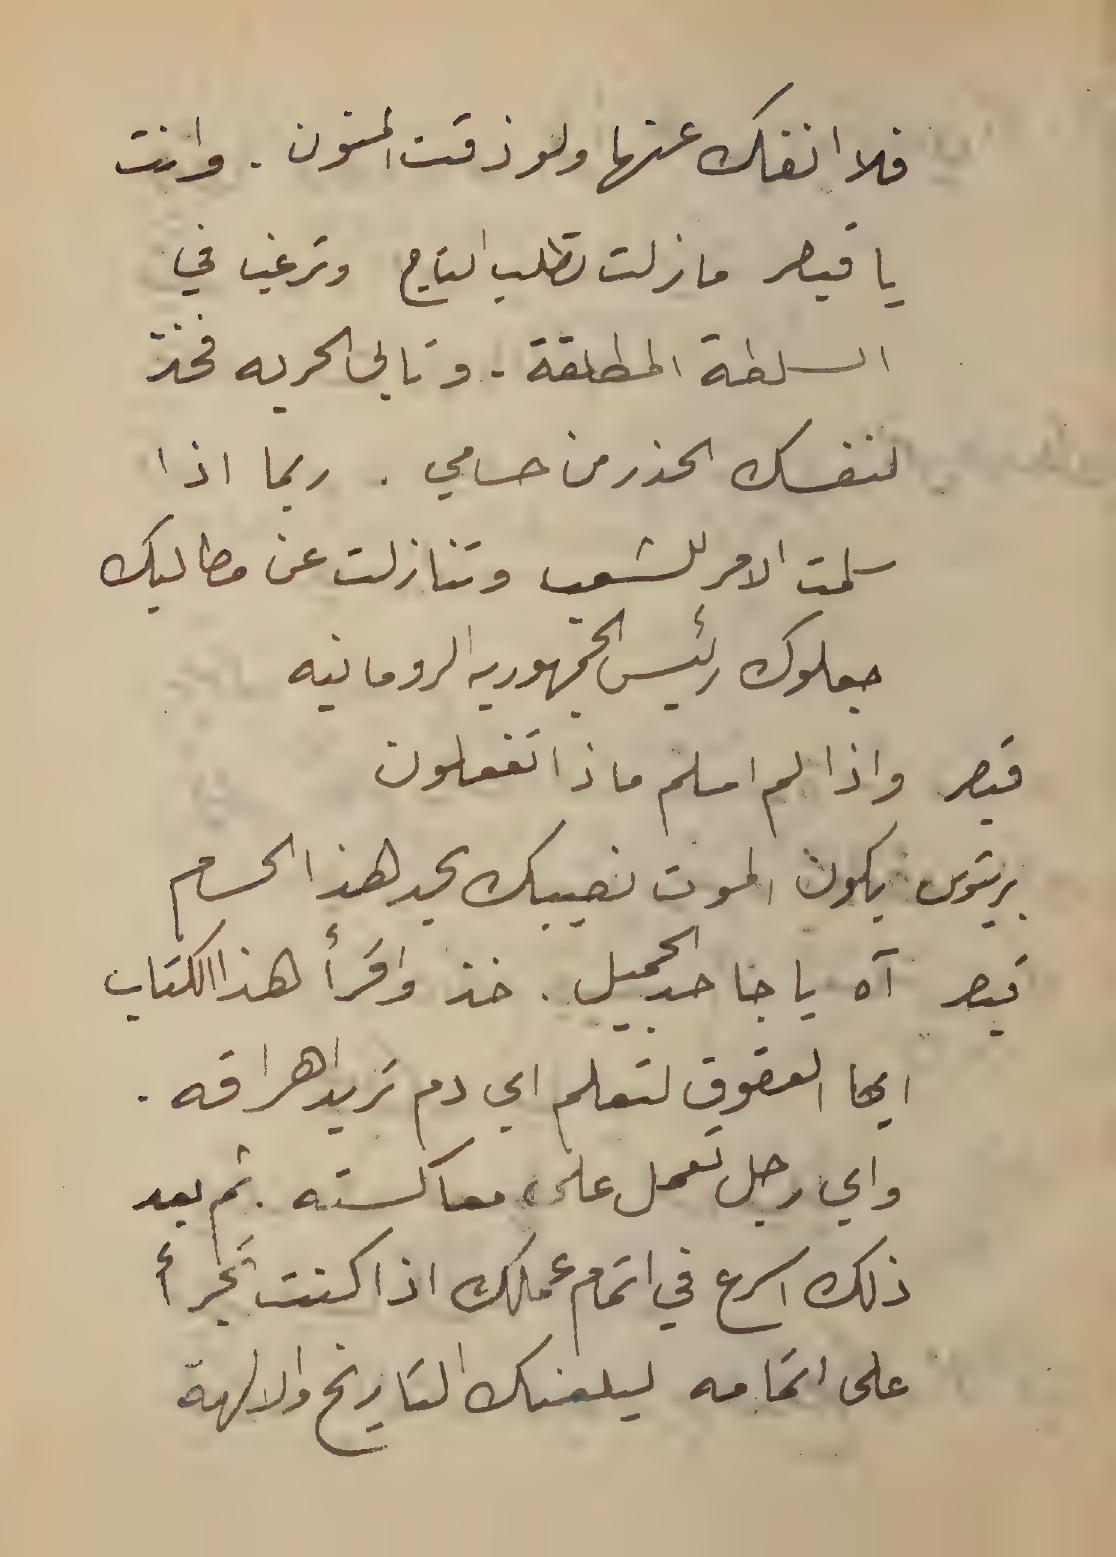 فلا انفك عنها ولو ذقت المنون . وانت
يا قيصر ما زلت تطلب التاج وترغب في
السلطة المطلقة . وتابى الحريه فخذ
لنفسك الحذر من حسامي . ربما اذا
سلمت الامر للشعب وتنازلت عن مطاليبك
جعلوك رئيس الجمهوريه الرومانيه
قيصر واذا لم اسلم ماذا تفعلون
بريتوس يكون الموت نصيبك بحد هذا الحسام
قيصر آه يا جاحد الجميل . خذ واقرأ هذا الكتاب
ايها العقوق لتعلم اي دم تريد اهراقه .
واي رجل تعمل على معاكسته . ثم بعد
ذلك اسرع في اتمام عملك اذا كنت تجرأ
على اتمامه ليلعنك التاريخ والالهة